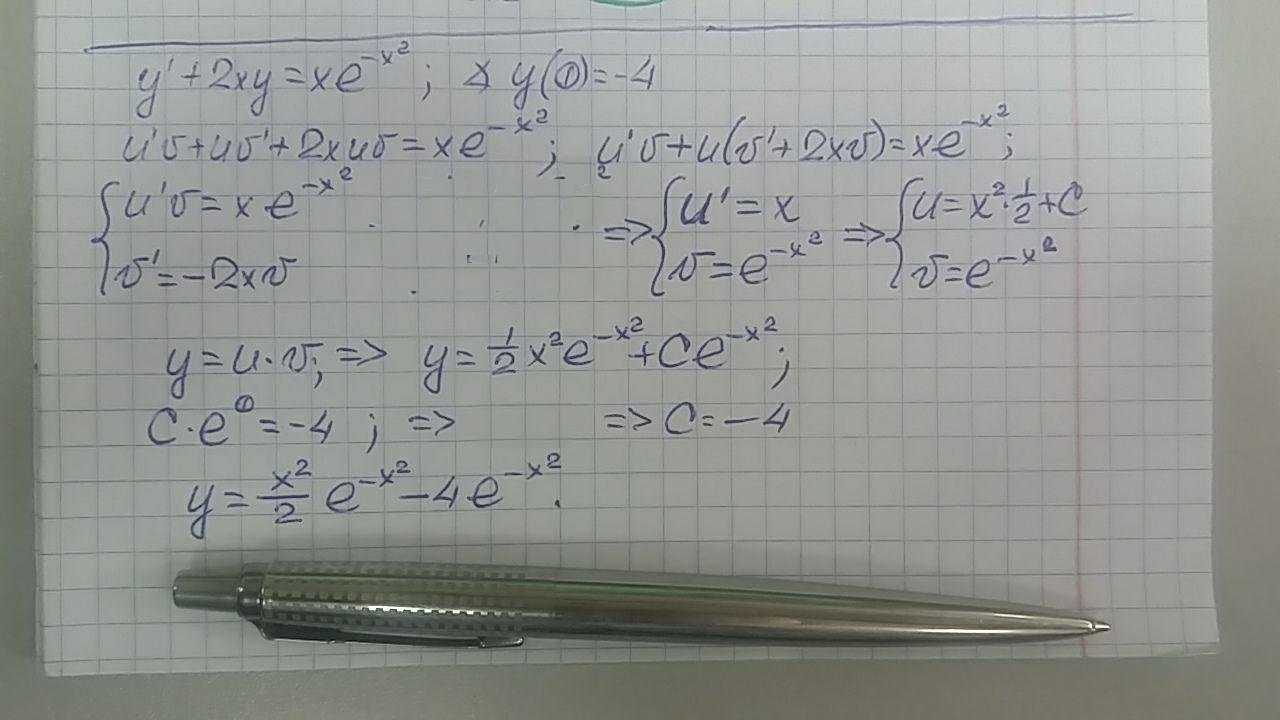 y' + 2xy = xe^{-x^2} ; ∡ y(0) = -4
u'v + uv' + 2xuv = xe^{-x^2} ; u'v + u(v' + 2xv) = xe^{-x^2} ;
{ u'v = xe^{-x^2} { v' = -2xv => { u' = x { v = e^{-x^2} => { u = x^2 · 1/2 + C { v = e^{-x^2}
y = u · v ; => y = 1/2 x^2 e^{-x^2} + Ce^{-x^2} ;
C · e^0 = -4 ; => => C = -4
y = x^2/2 e^{-x^2} - 4e^{-x^2} .